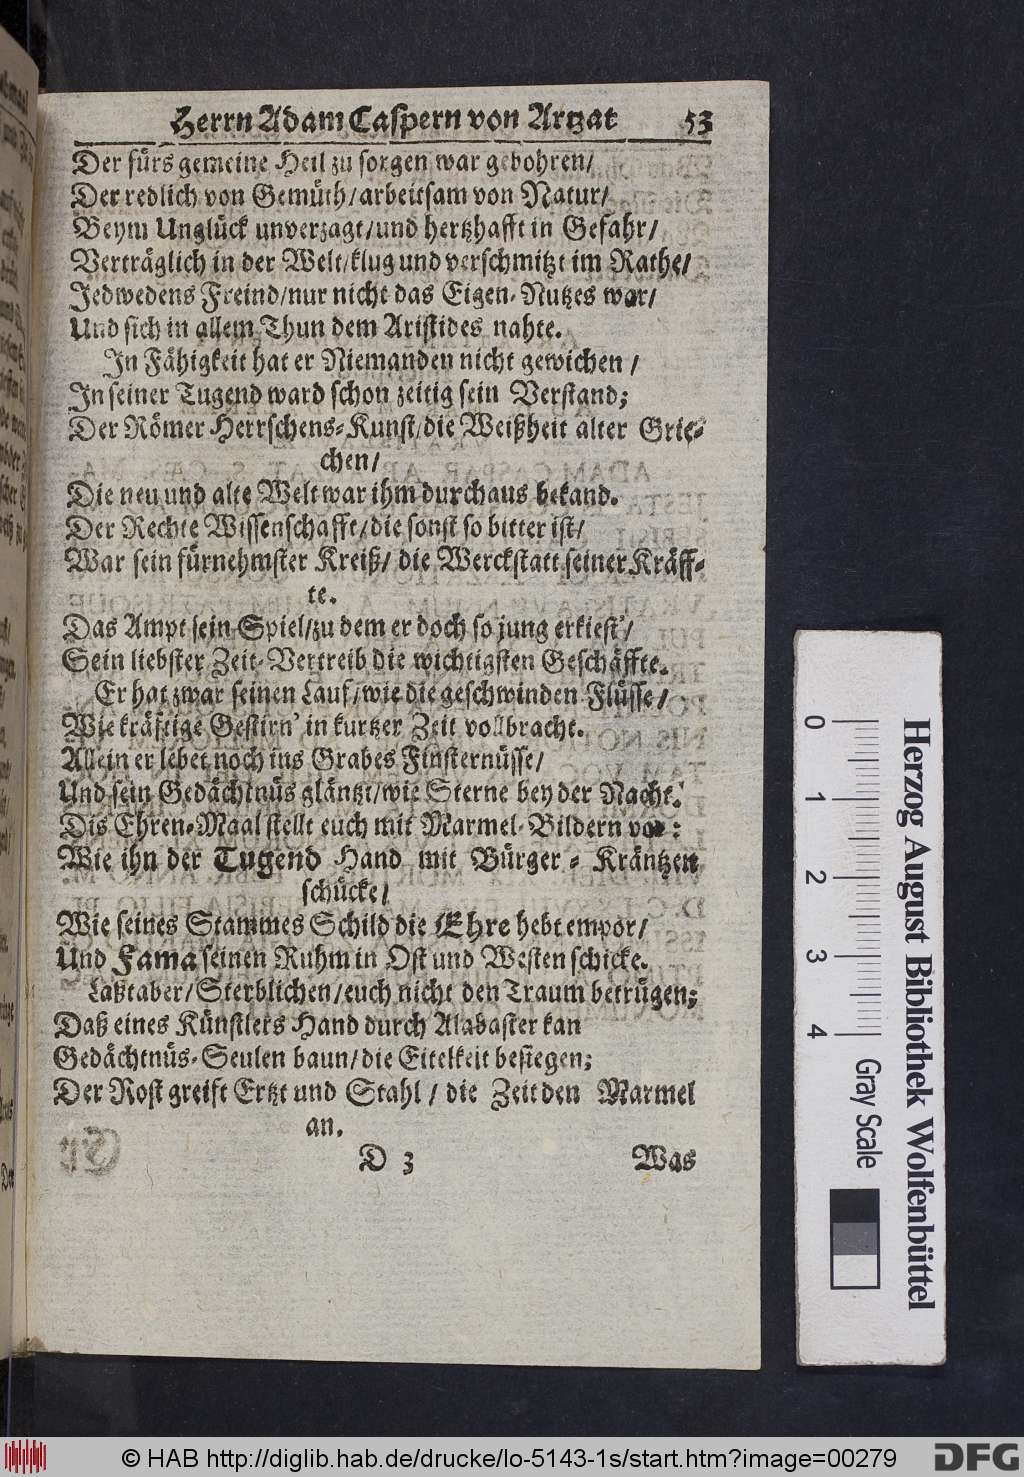 Herrn Adam Caspern von Artzat 53
Der fürs gemeine Heil zu sorgen war gebohren/
Der redlich von Gemüth/arbeitsam von Natur/
Beym Unglück unverzagt/und hertzhafft in Gefahr/
Verträglich in der Welt/klug und verschmitzt im Rathe/
Jedwedens Freind/nur nicht das Eigen-Nutzes war/
Und sich in allem Thun dem Aristides nahte.
In Fähigkeit hat er Niemanden nicht gewichen /
In seiner Tugend ward schon zeitig sein Verstand;
Der Römer Herrschens-Kunst/die Weißheit alter Grie-
chen/
Die neu und alte Welt war ihm durchaus bekand.
Der Rechte Wissenschafft/die sonst so bitter ist/
War sein fürnehmster Kreiß/ die Werckstatt seiner Kräff-
te.
Das Ampt sein Spiel/zu dem er doch so jung erkiest/
Sein liebster Zeit-Vertreib die wichtigsten Geschäffte.
Er hat zwar seinen Lauf/wie die geschwinden Flüsse/
Wie kräftige Gestirn' in kurtzer Zeit vollbracht.
Allein er lebet noch ins Grabes Finsternüsse/
Und sein Gedächtnüs gläntzt/wie Sterne bey der Nacht.
Dis Ehren-Maal stellt euch mit Marmel-Bildern vor:
Wie ihn der Tugend Hand mit Bürger-Kräntzen
schücke/
Wie seines Stammes Schild die Ehre hebt empor/
Und Fama seinen Ruhm in Ost und Westen schicke.
Laßt aber/Sterblichen/euch nicht den Traum betrügen;
Daß eines Künstlers Hand durch Alabaster kan
Gedächtnüs-Seulen baun/die Eitelkeit besiegen;
Der Rost greift Ertzt und Stahl / die Zeit den Marmel
an.
D 3 Was
0 1 2 3 4 Gray Scale
Herzog August Bibliothek Wolfenbüttel
© HAB http://diglib.hab.de/drucke/lo-5143-1s/start.htm?image=00279
DFG